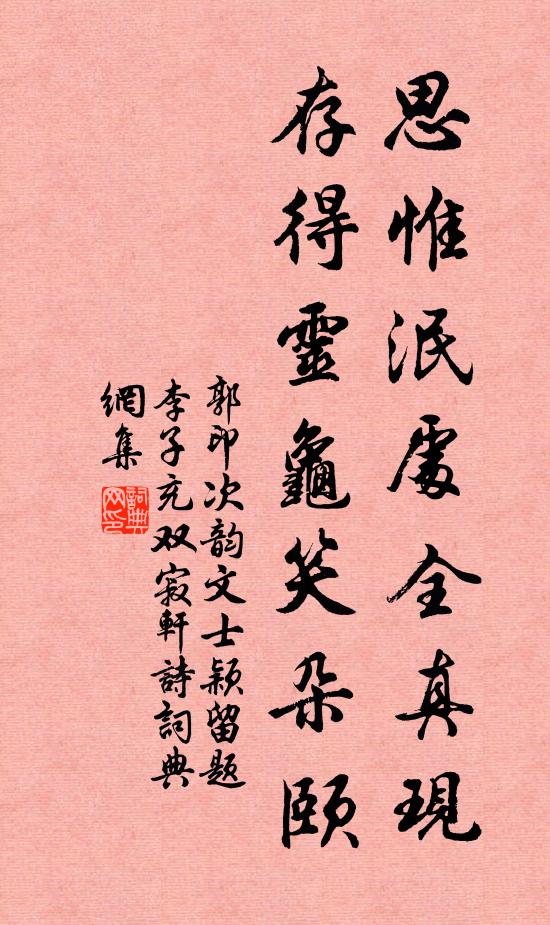 思惟泯處全真現
存得靈龜笑朵頤
郭印次韵文士穎留題
李子充双寂軒詩詞典
網集
詞典
网印